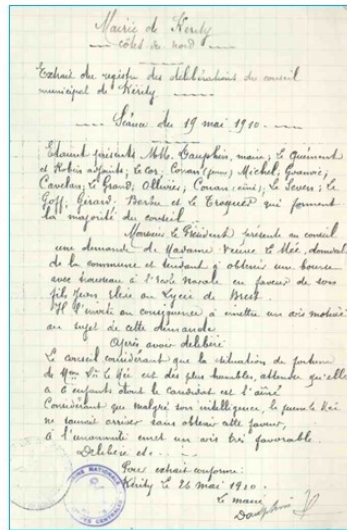 Mairie de Kérity
côtes du nord
Extrait du registre des délibérations du conseil
municipal de Kérity
Séance du 19 mai 1910.
Etaient présents MMrs Dauphin, maire; Le Quément
et Robin adjoints; Le Cor; Conan (jeune) Michel,
Cavelan; Le Grand; Ollivier; Conan (aîné); Le Severs; Le
Goff; Gérard; Barbu et Le Troquer qui forment
la majorité du conseil
Monsieur le Président présente au conseil
une demande de Madame Veuve Le Mée, domiciliée
de la commune et tendant à obtenir une bourse
avec trousseau à l'Ecole navale en faveur de son
fils Jean élève au Lycée de Brest.
Il l'invite en conséquence, à émettre un avis motivé
au sujet de cette demande.
Après avoir délibéré
Le conseil considérant que la situation de fortune
de Mme Vve Le Mée est des plus humbles, attendu qu'elle
a 6 enfants dont le candidat est l'aîné
Considérant que malgré son intelligence, le jeune Le Mée
ne saurait arriver sans obtenir cette faveur,
à l'unanimité émet un avis très favorable.
Délibéré etc.
Pour extrait conforme:
Kérity le 26 mai 1910.
Le maire
Dauphin